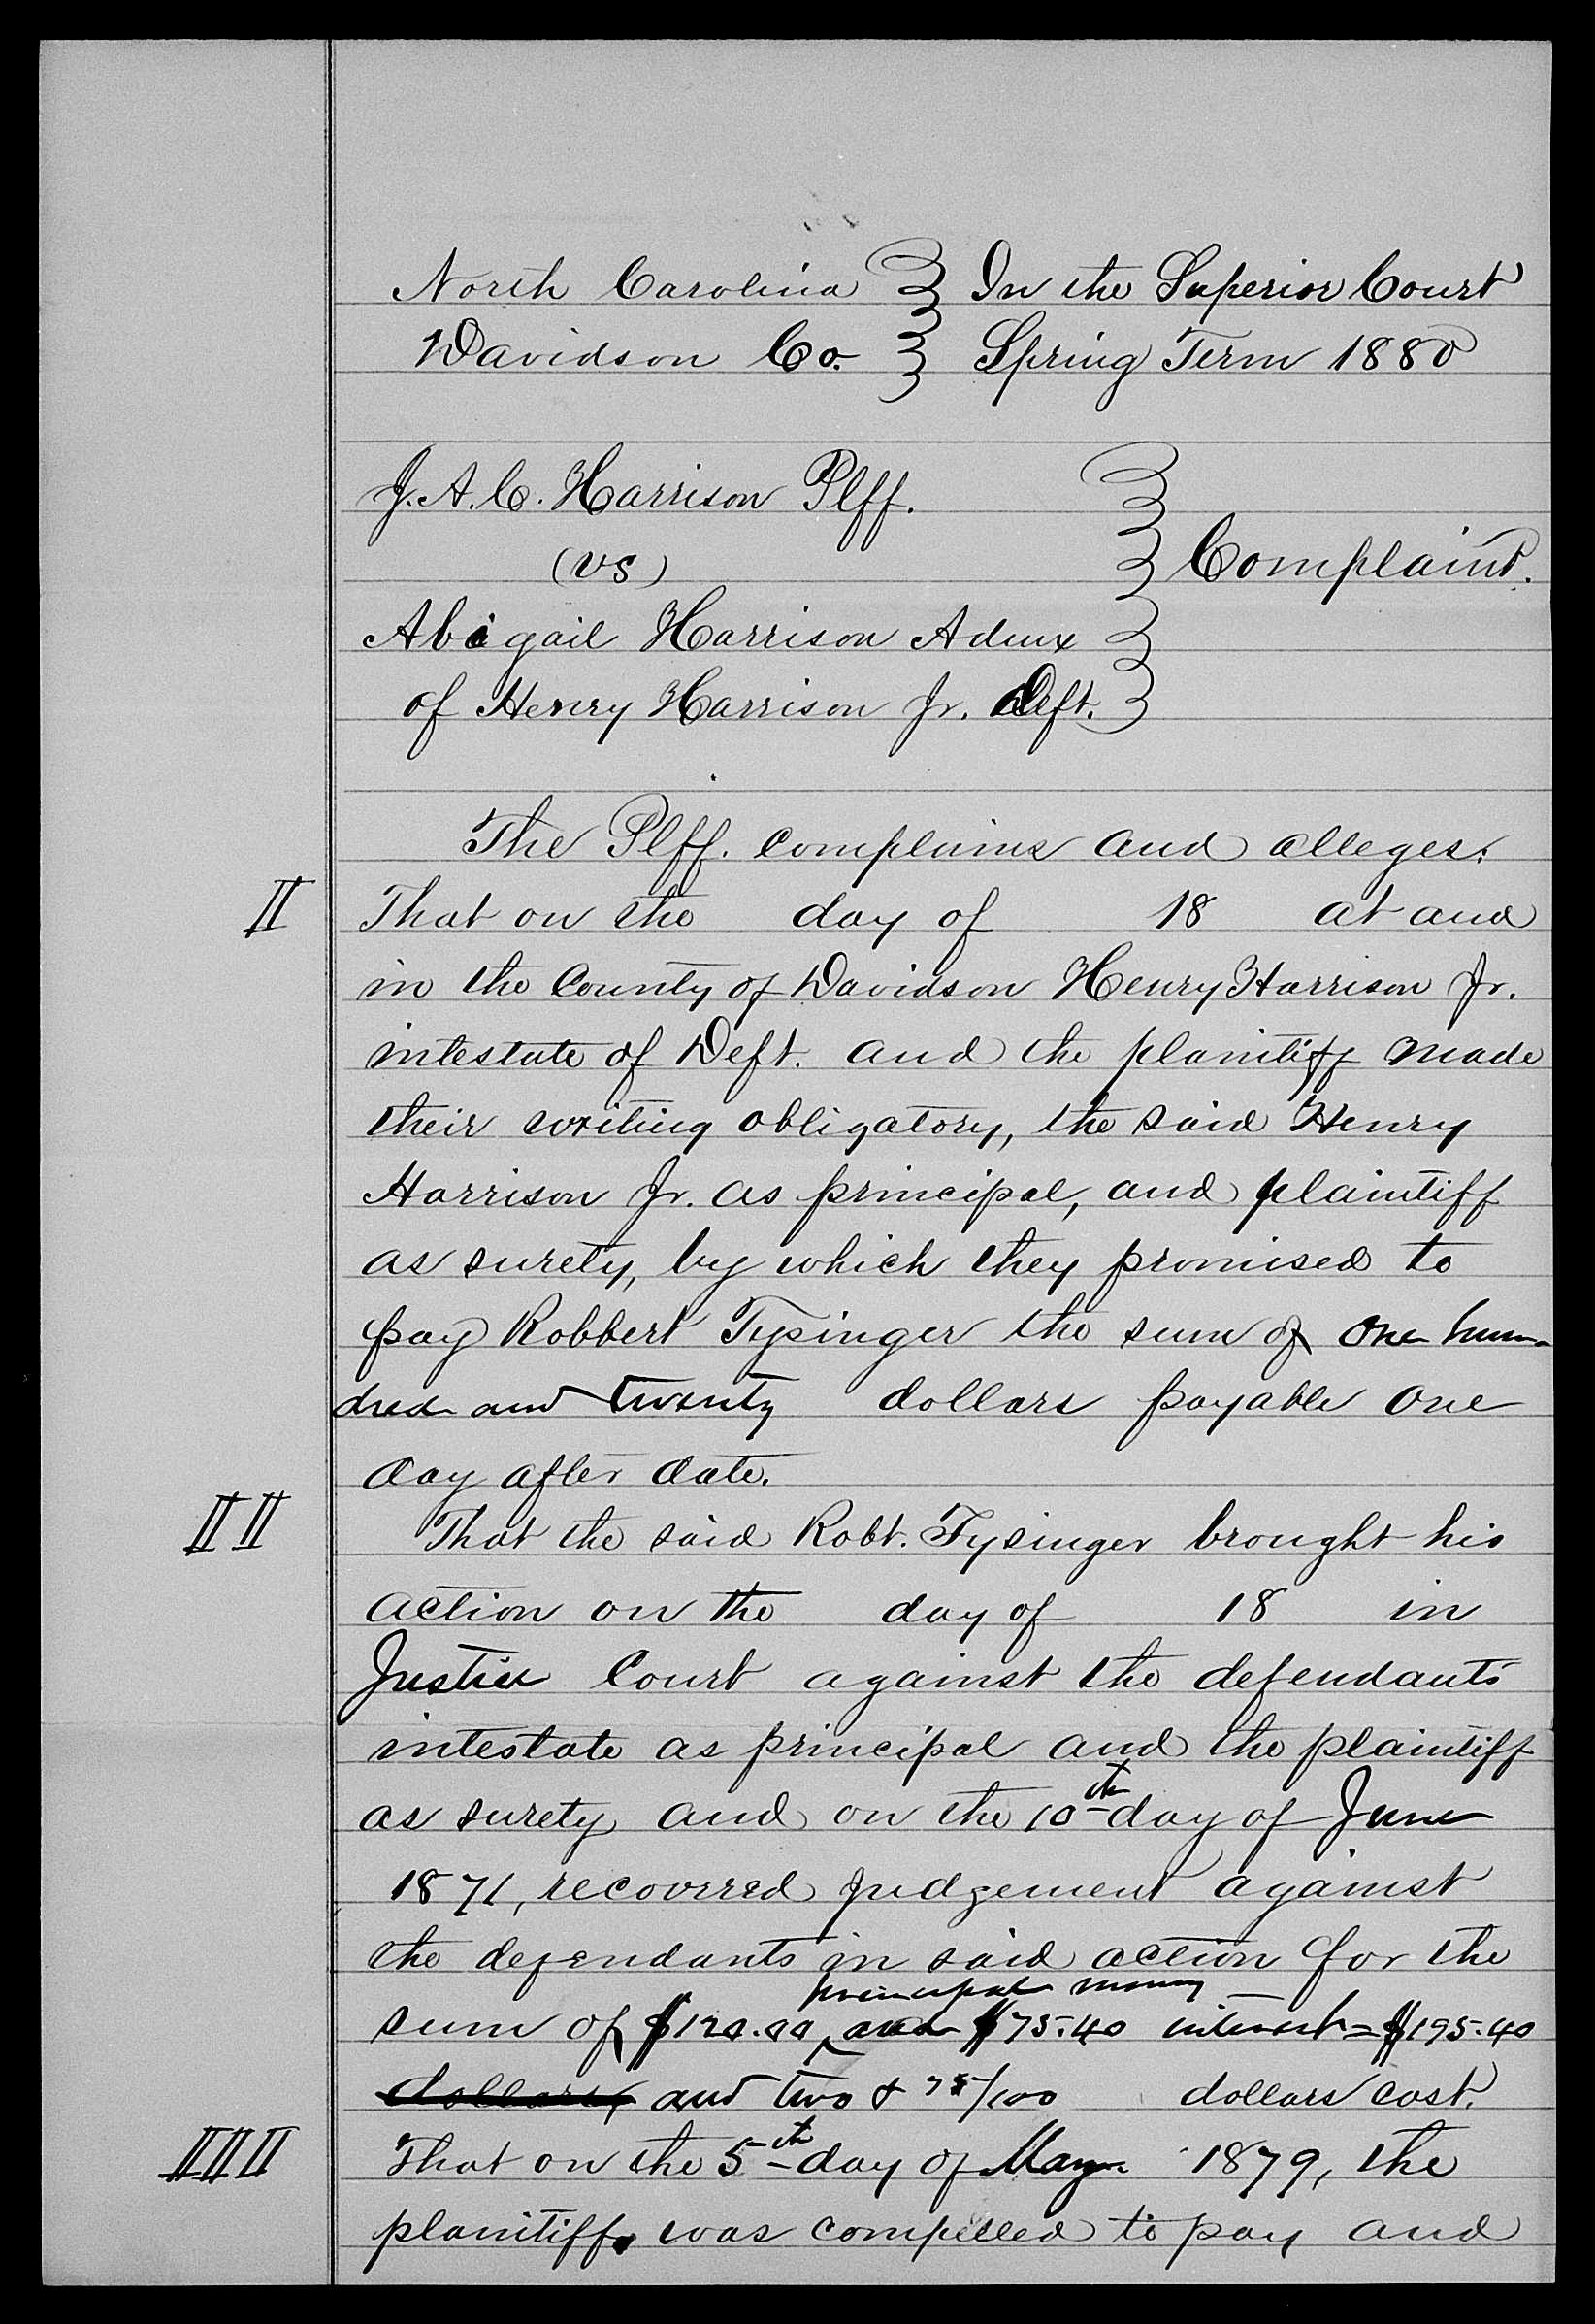 North Carolina } In the Superior Court
Davidson Co. } Spring Term 1880
J. A. C. Harrison Plff.
(vs) } Complaint.
Abigail Harrison Admx
of Henry Harrison Jr. Deft.
The Plff. complains and alleges:
I That on the day of 18 at and
in the County of Davidson Henry Harrison Jr.
intestate of Deft. and the plaintiff made
their writing obligatory, the said Henry
Harrison Jr. as principal, and plaintiff
as surety, by which they promised to
pay Robbert Tysinger the sum of One hun-
dred and twenty dollars payable one
day after date.
II That the said Robt. Tysinger brought his
action on the day of 18 in
Justice Court against the defendants
intestate as principal and the plaintiff
as surety and on the 10th day of June
1871, recovered judgement against
the defendants in said action for the
principal money
sum of $120.00 and $75.40 interest = $195.40
dollars, and two & 75/100 dollars cost.
III That on the 5th day of May 1879, the
plaintiff, was compelled to pay and